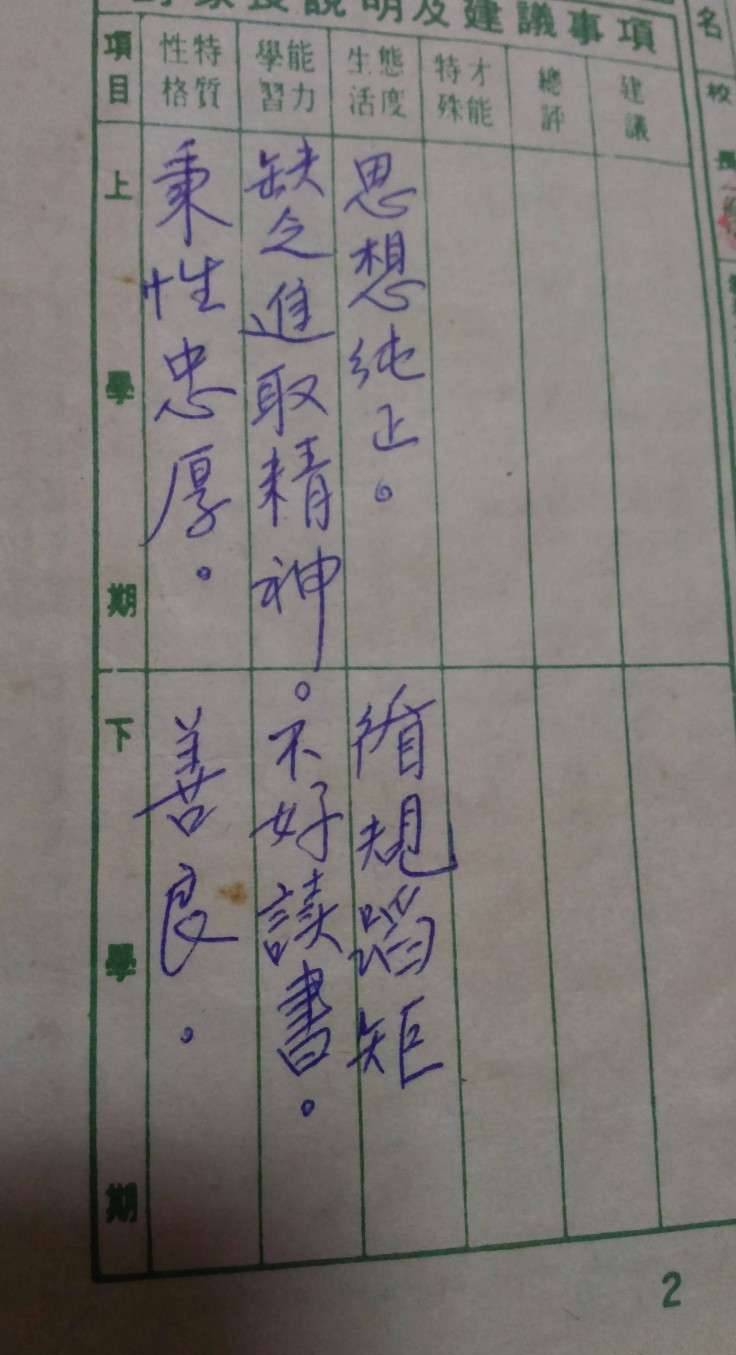 家長說明及建議事項
項目
性格特質
學習能力
生活態度
特殊才能
總評
建議
上學期
秉性忠厚。
缺乏進取精神。
思想純正。
下學期
善良。
不好讀書。
循規蹈矩
名
校長
2